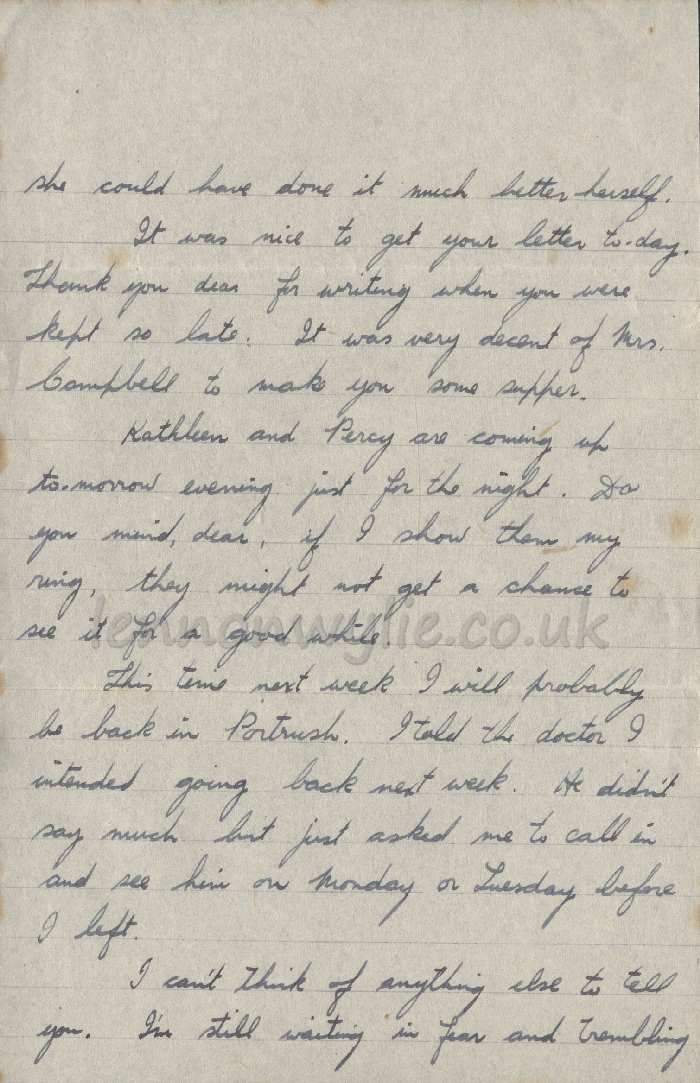 she could have done it much better herself.
It was nice to get your letter to-day.
Thank you dear for writing when you were
kept so late. It was very decent of Mrs.
Campbell to make you some supper.
Kathleen and Percy are coming up
to-morrow evening just for the night. Do
you mind, dear, if I show them my
ring, they might not get a chance to
see it for a good while.
lennonwylie.co.uk
This time next week I will probably
be back in Portrush. I told the doctor I
intended going back next week. He didn't
say much but just asked me to call in
and see him on Monday or Tuesday before
I left.
I can't think of anything else to tell
you. I'm still waiting in fear and trembling